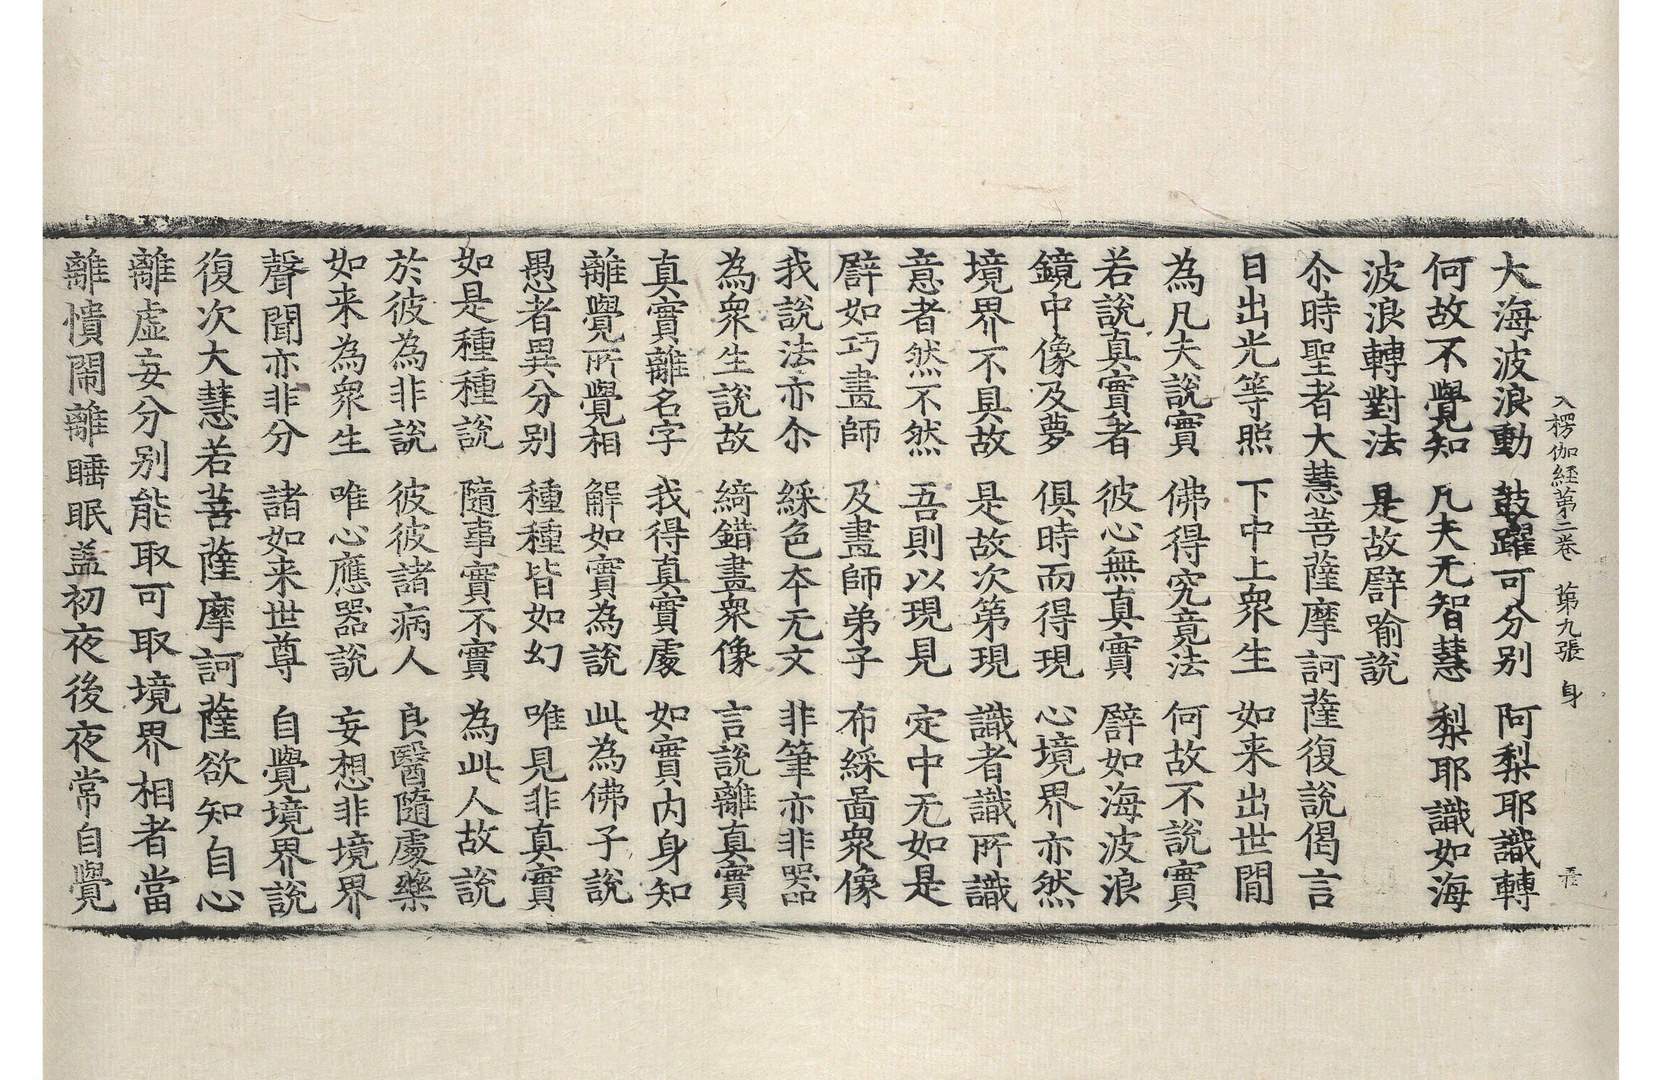 入楞伽經第二卷 第九張 身
大海波浪動 鼓躍可分别 阿梨耶識轉
何故不覺知 凡夫无智慧 梨耶識如海
波浪轉對法 是故辟喻說
尒時聖者大慧菩薩摩訶薩復說偈言
日出光等照 下中上衆生 如来出世間
為凡夫說實 佛得究竟法 何故不說實
若說真實者 彼心無真實 辟如海波浪
鏡中像及夢 俱時而得現 心境界亦然
境界不具故 是故次第現 識者識所識
意者然不然 吾則以現見 定中无如是
辟如巧畫師 及畫師弟子 布綵啚衆像
我說法亦尒 綵色夲无文 非筆亦非器
為衆生說故 綺錯畫衆像 言說離真實
真實離名字 我得真實處 如實内身知
離覺所覺相 解如實為說 此為佛子說
愚者異分别 種種皆如幻 唯見非真實
如是種種說 隨事實不實 為此人故說
於彼為非說 彼彼諸病人 良醫隨處藥
如来為衆生 唯心應器說 妄想非境界
聲聞亦非分 諸如来世尊 自覺境界說
復次大慧若菩薩摩訶薩欲知自心
離虛妄分别能取可取境界相者當
離憒鬧離睡眠盖初夜後夜常自覺